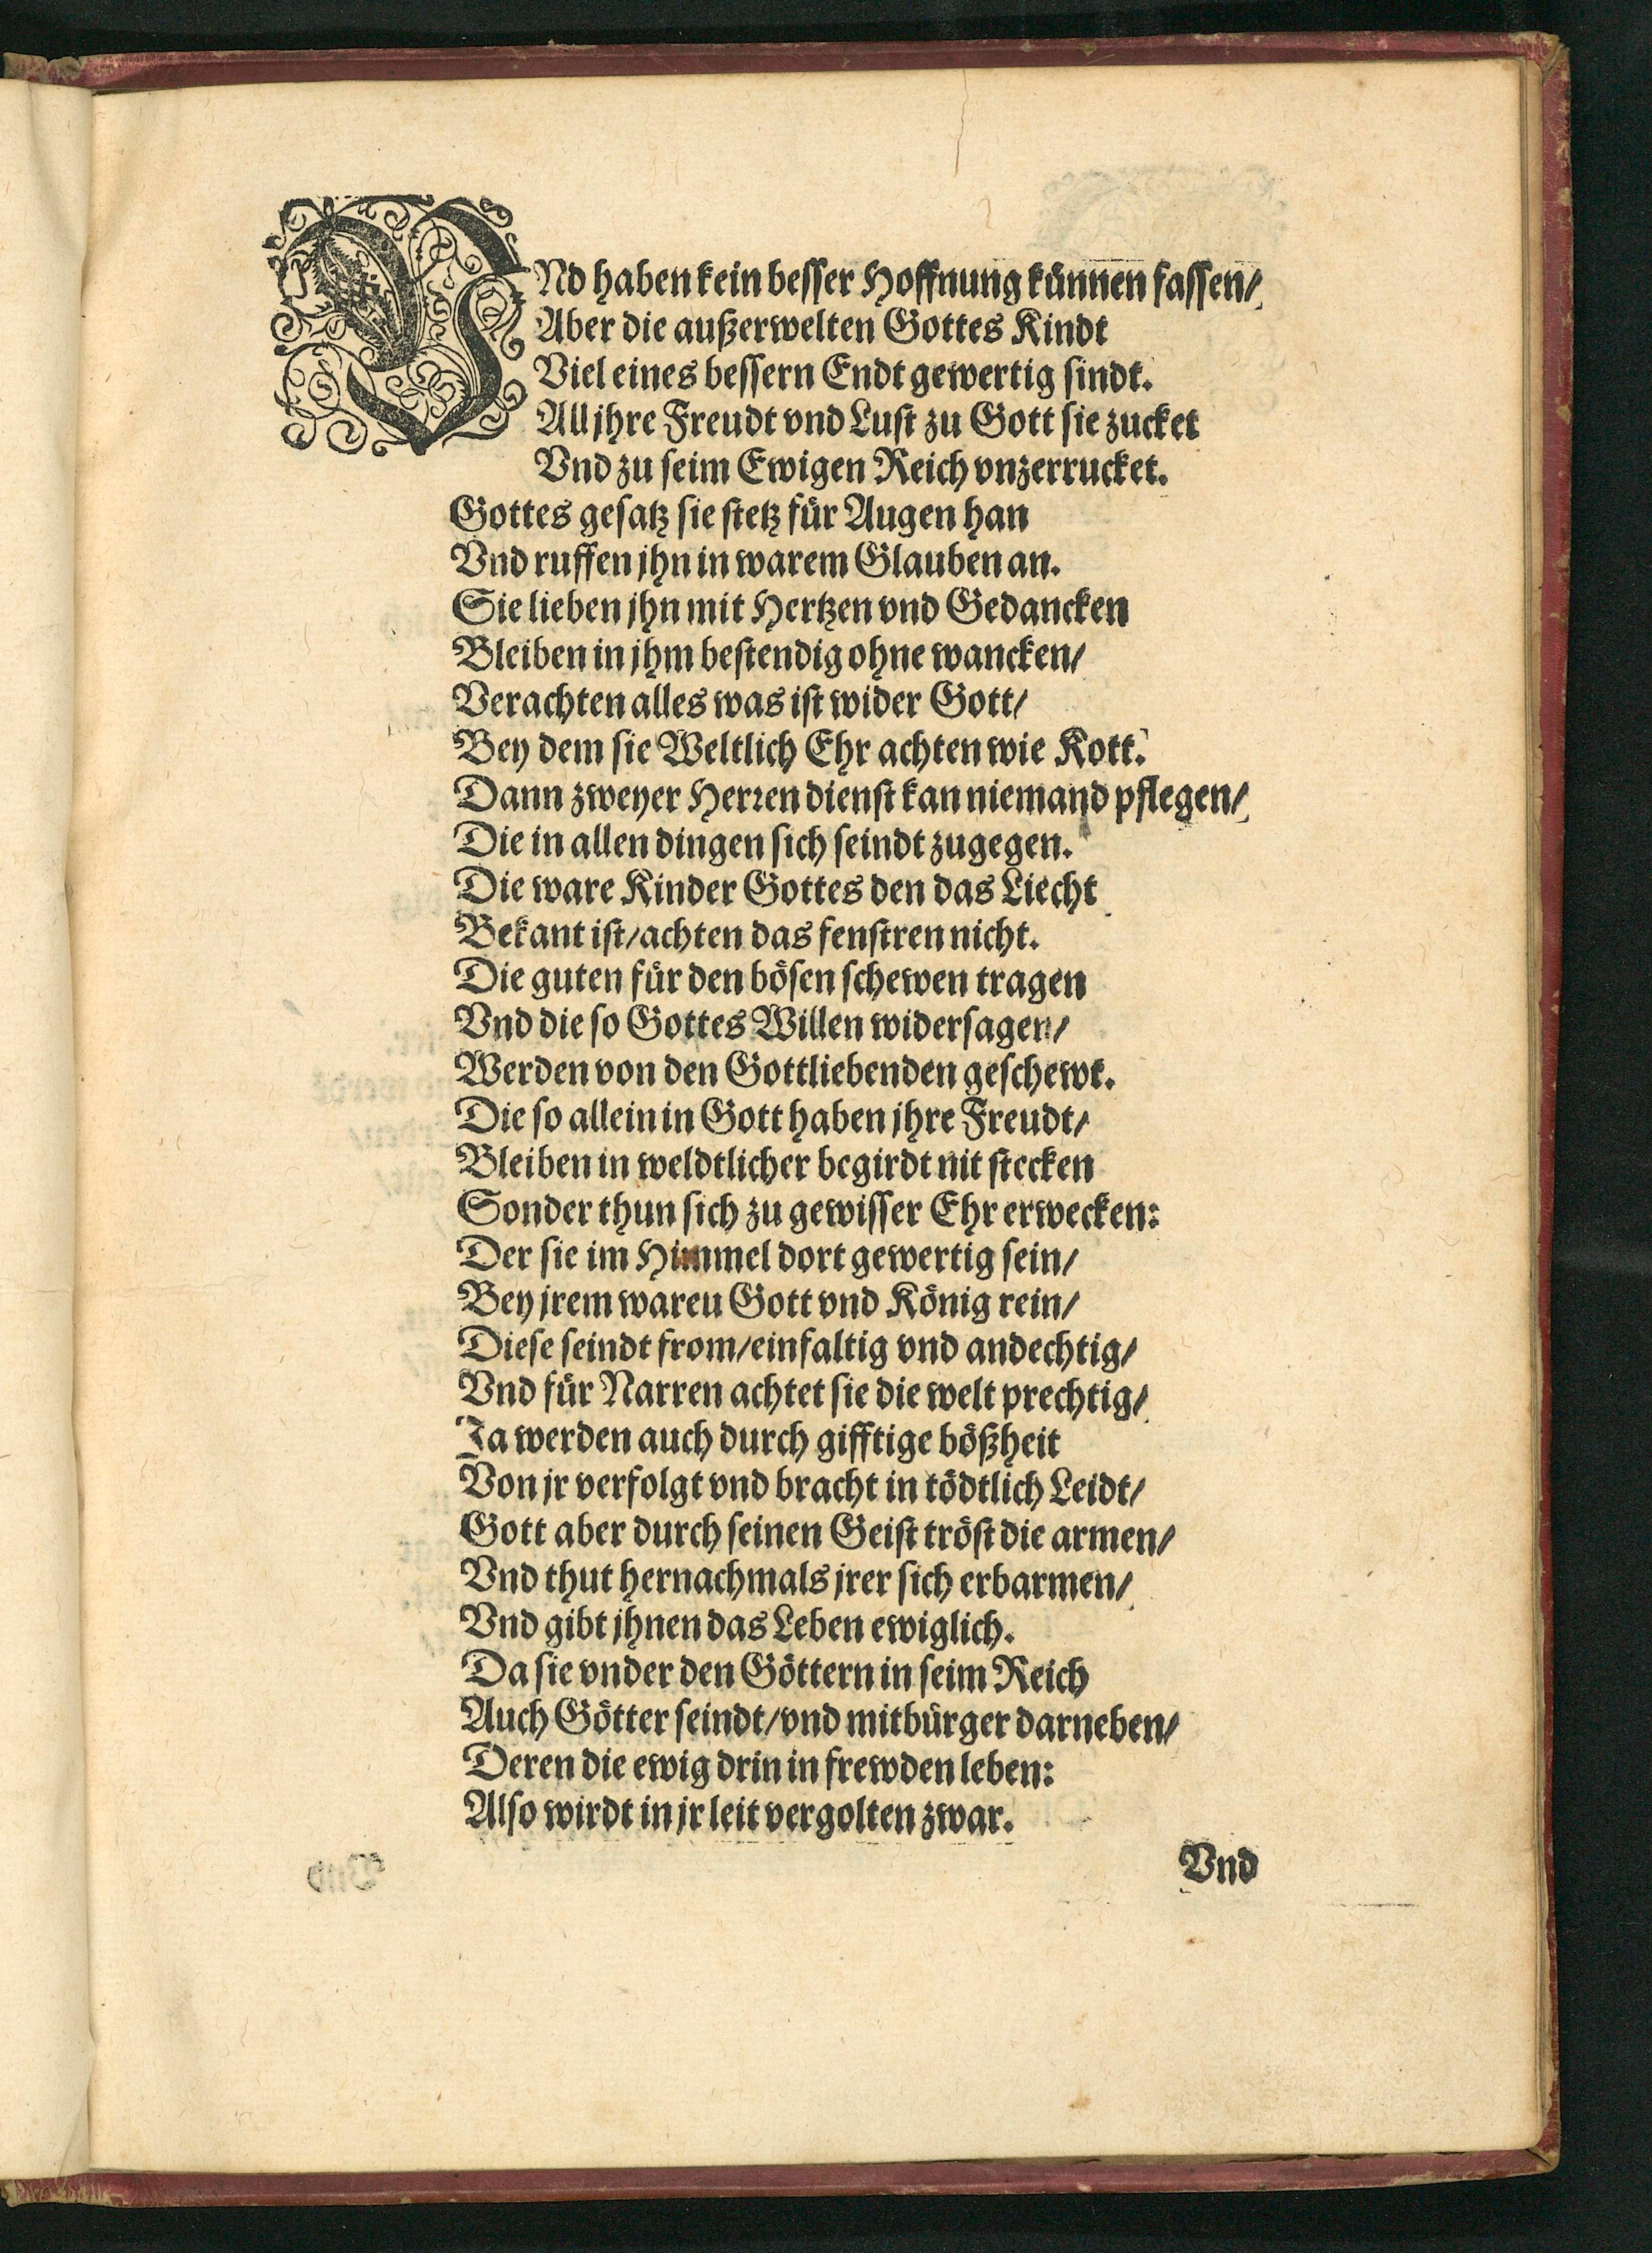 VNd haben kein besser Hoffnung künnen fassen/
Aber die außerwelten Gottes Kindt
Viel eines bessern Endt gewertig sindt.
All jhre Freudt vnd Lust zu Gott sie zucket
Vnd zu seim Ewigen Reich vnzerrucket.
Gottes gesatz sie stetz für Augen han
Vnd ruffen jhn in warem Glauben an.
Sie lieben jhn mit Hertzen vnd Gedancken
Bleiben in jhm bestendig ohne wancken/
Verachten alles was ist wider Gott/
Bey dem sie Weltlich Ehr achten wie Kott.
Dann zweyer Herren dienst kan niemand pflegen/
Die in allen dingen sich seindt zugegen.
Die ware Kinder Gottes den das Liecht
Bekant ist/achten das fenstren nicht.
Die guten für den bösen schewen tragen
Vnd die so Gottes Willen widersagen/
Werden von den Gottliebenden geschewt.
Die so allein in Gott haben jhre Freudt/
Bleiben in weldtlicher begirdt nit stecken
Sonder thun sich zu gewisser Ehr erwecken:
Der sie im Himmel dort gewertig sein/
Bey jrem wareu Gott vnd König rein/
Diese seindt from/einfaltig vnd andechtig/
Vnd für Narren achtet sie die welt prechtig/
Ja werden auch durch gifftige bößheit
Von jr verfolgt vnd bracht in tödtlich Leidt/
Gott aber durch seinen Geist tröst die armen/
Vnd thut hernachmals jrer sich erbarmen/
Vnd gibt jhnen das Leben ewiglich.
Da sie vnder den Göttern in seim Reich
Auch Götter seindt/vnd mitbürger darneben/
Deren die ewig drin in frewden leben:
Also wirdt in jr leit vergolten zwar.
Vnd